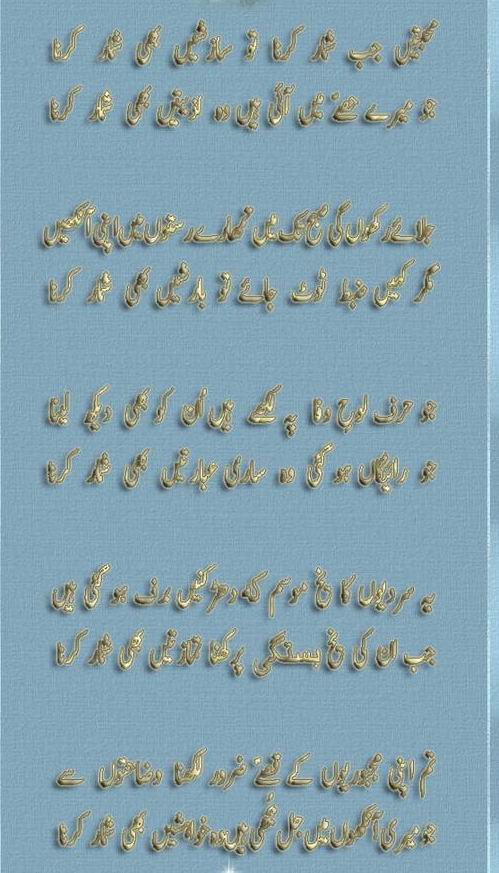 محبتیں جب شمار کرنا تو سازشیں بھی شمار کرنا
جو میرے حصے میں آئی ہیں وہ اذیتیں بھی شمار کرنا
جلائے رکھوں گی صبح تک میں تمھارے رستوں میں اپنی آنکھیں
مگر کہیں ضبط ٹوٹ جائے تو بارشیں بھی شمار کرنا
جو حرف لوحِ وفا پہ لکھے ہیں اُن کو بھی دیکھ لینا
جو رائیگاں ہو گئی وہ ساری عبارتیں بھی شمار کرنا
یہ سردیوں کا یخ موسم کہ دھڑکنیں برف ہو گئی ہیں
جب ان کی یخ بستگی پرکھنا تمازتیں بھی شمار کرنا
تم اپنی مجبوریوں کے قصے ضرور لکھنا وضاحتوں سے
جو میری آنکھوں میں جل بُجھی ہیں وہ خواہشیں بھی شمار کرنا